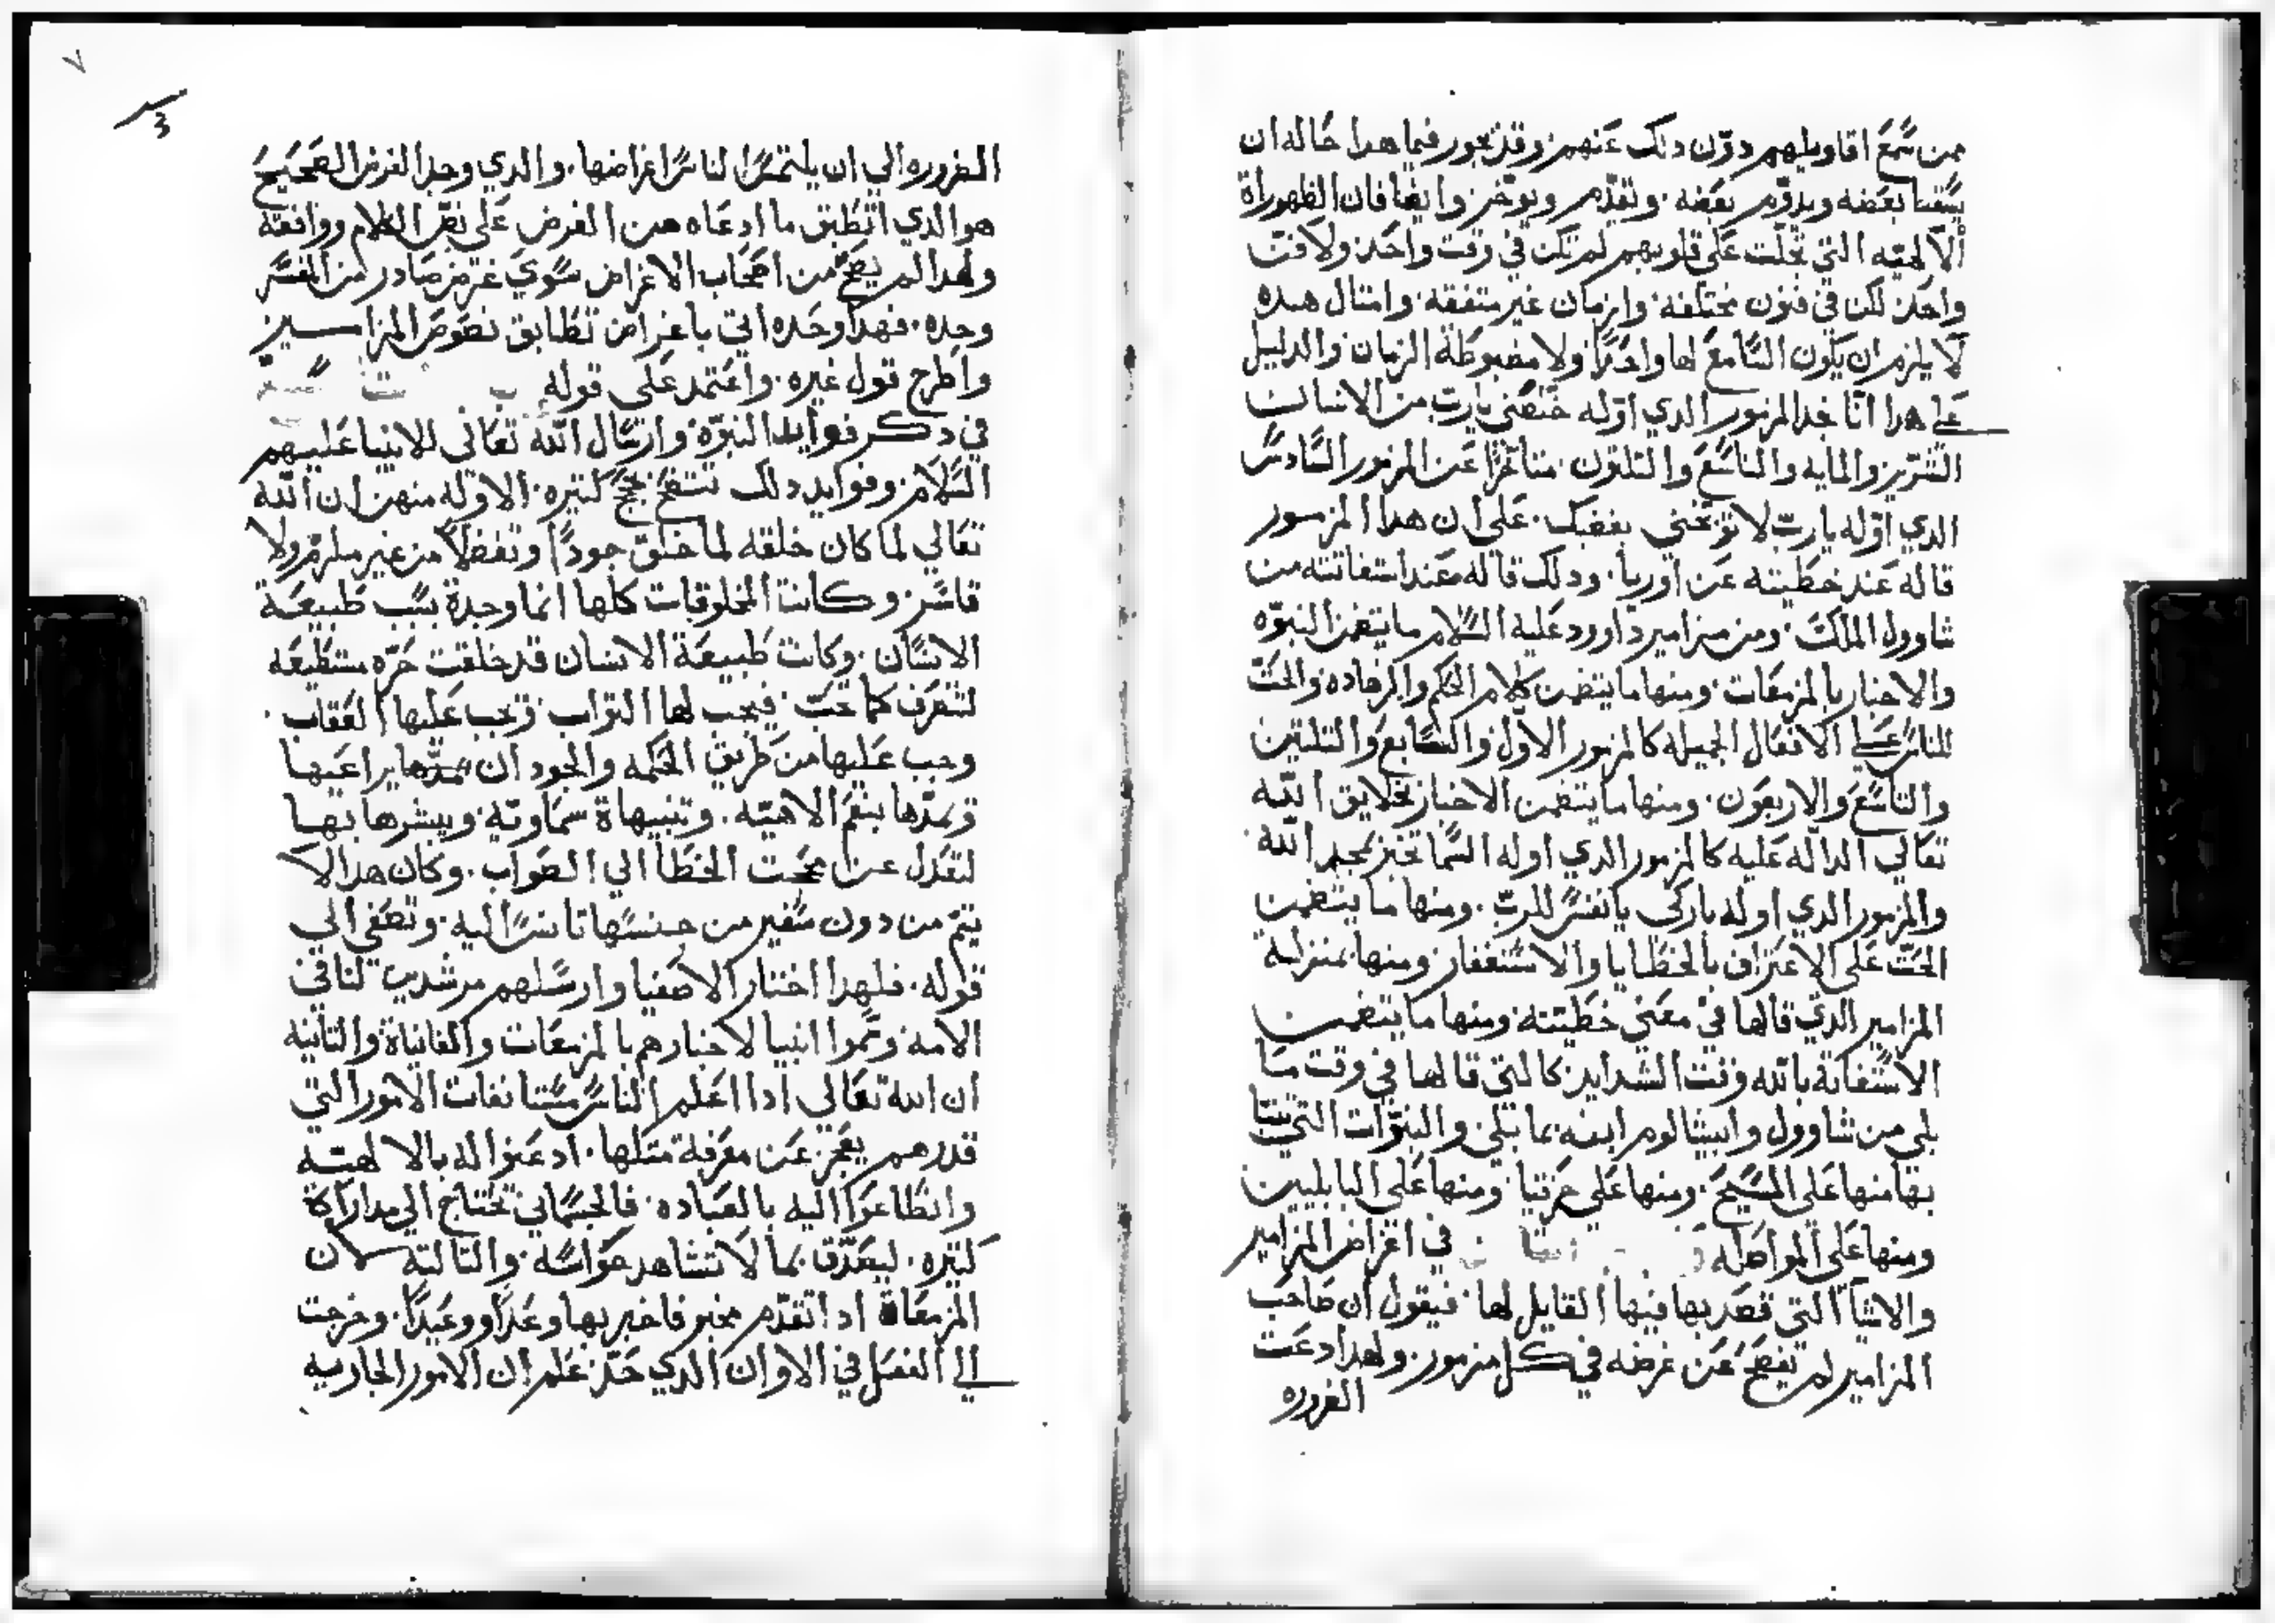 ممن سَمعَ اقاويلهم دوّن دلك عَنهم. وقد يجور فيما هدا حَاله ان
يتقسا بعَضه ويدوّم بعَضه. وتقدّم ويوخر وايضا فان الظهوراة
الالهيّه التي تجلت عَلي قلوبهم لم تكن في وقت واحَد ولا فن
واحَد لكن في فنون مختلفه. وازمان غير متفقه. وامتال هده
لا يلزم ان يكون السَّامعَ لها واحَدًا ولا مضبوطة الزمان والدليل
عَلي هدا انّا نجد المزمور الدي اوّله خَلصَني يارب من الانسان
الشرير والمايه والتاسَع والتلتون متاخرًا عَن المزمور السَّادس
الدي اوّله يارب لا توبخني بغضبك. عَلي ان هدا المزمور
قاله عَند خطيته عَن اوريا. ودلك قاله عَند استغاتته من
شاوول الملك. ومن مزامير داوود عَليه السَّلام ما يتضمن النبوّه
والاخبار بالمزمعَات. ومنها ما يتضمن كلام الحكم والزهاده والحَتّ
للناسَ عَلي الافعَال الجميله كالمزمور الاول والسَّابع والتلتين
والتاسَعَ والاربعَون. ومنها ما يتضمن الاخبار بخلايق الله
تعَالي الدالّه عَليه كالمزمور الدي اوله السَّما تخبر بمجد الله
والمزمور الدي اوله باركي يا نفسَ للربّ. ومنها ما يتضمن
الحَتّ عَلي الاعَتراف بالخطايا والاسَتغفار. ومنها بمنزلة
المزامير الدي قالها في معَني خَطيته. ومنها ما يتضمن
الاسَتغاتة بالله وقت الشدايد كالتي قالها في وقت مَا
بلي من شاوول وابيشالوم ابنه بما بلي. والنبوّات التي تنبّا
بها منها عَلي المسَيحَ. ومنها عَلي حزقيا. ومنها عَلي البابليين
ومنها عَلي المواصله في اغراض المزامير
والاشيآ التي قصَد بها فيها القايل لها. فيقول ان صَاحَب
المزامير لم يفصَحَ عَن غرضه في كل مزمور. ولهدا دعَت
الضروره
الضروره الي ان يلتمسَ الناسَ اغراضها. والدي وجد الغرض الصَحَيحَ
هو الدي انطبق ما ادعَاه من الغرض عَلي نصّ الكلام ووافقه
ولهدا لم يصَحّ من اصَحَاب الاغراض سَوي غرض صَادر من المفسَّر
وحده. فهدا وحَده اتي باغراض تطابق نصَوصَ المزامير
واطرح قول غيره. واعَتمد عَلي قوله
في دكر فوايد النبوّه وارسَال الله تعَالي للانبيا عَليهم
السَّلام. وفوايد دلك تتضحَ بحجج كتيره. الاوّله منهن ان الله
تعَالي لما كان خلقه لما خلق جودًا وتفضلاً من غير ملزم ولا
قاسَر. وكانت المخلوقات كلها انما وجدة بسَبب طبيعَة
الانسَان. وكانت طبيعَة الانسان قد خلقت حَرّه مستطيعَه
لتتصرف كما تحَبّ. فيجب لها التواب. وتجب عَليها العَقاب.
وجب عَليها من طريق الحَكمه والجود ان يمدّها يراعَيها
ويمدّها بنعَم الاهيّه. وتنبيهاة سَماويّه. ويبشرها بها
لتعَدل عن محَجت الخطا الي الصَواب. وكان هدا لا
يتم من دون سَفير من جنسَها تانسَ اليه. وتصَغي الي
قوله. فلهدا اختار الاصَفيا وارسَلهم مرشدين لنا في
الامه. وسَموا انبيا لاخبارهم بالمزمعَات والغايباة. والتانيه
ان الله تعَالي ادا اعَلم الناسَ مسَتانفات الامور التي
قدرهم يعَجز عَن معَرفة متلها. ادعَنوا له بالالهيّة
وانطاعَوا اليه بالعَباده. فالجسَماني تحَتاج الي مداراة
كتيره. ليصَدّق بما لا تشاهد حَواسَّه. والتالته لان
المزمعَاة ادا تقدّم مخبر فاخبر بها وعَدًا ووعَيدًا. وخرجت
الي الفعَل في الاوان الدي حَدّد عَلم ان الامور الجاريه